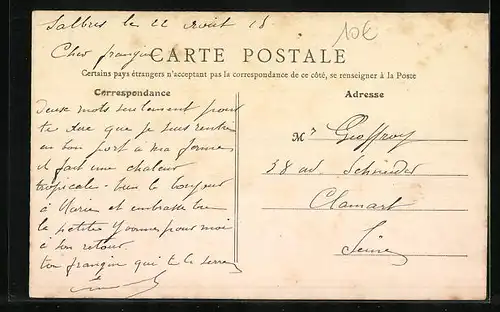 Salbris le 22 Août 18
10€
Cher frangin
CARTE POSTALE
Certains pays étrangers n'acceptant pas la correspondance de ce côté, se renseigner à la Poste
Correspondance
Adresse
Deux mots seulement pour
te dire que je suis rentré
en bon port à ma ferme
il fait une chaleur
tropicale - bien le bonjour
à Marie et embrasse bien
la petite Yvonne pour moi
à son retour
ton frangin qui te la serre
Mr Geoffroy
38 av Schneider
Clamart
Seine